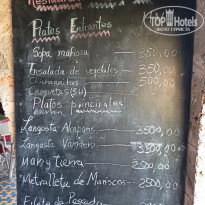 Restaurant
TopHotels
Platos Entrantes
Sopa mañosa 350,00
Ensalada de vegetales 350,00
Chicharrones 500,00
Croquetas (5U)
Platos principales
Langosta Akapone 3500,00
Langosta Vandero 3300,00
Mar y Tierra 2500,00
Metralleta de Mariscos 2500,00
Filete de Pescado